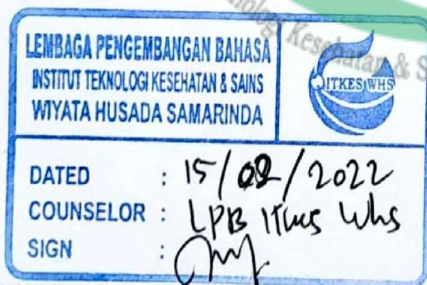 nologi Kesehatan & S
LEMBAGA PENGEMBANGAN BAHASA
INSTITUT TEKNOLOGI KESEHATAN & SAINS
WIYATA HUSADA SAMARINDA
ITKES WHS
DATED : 15/02/2022
COUNSELOR : LPB ITKES Whs
SIGN :